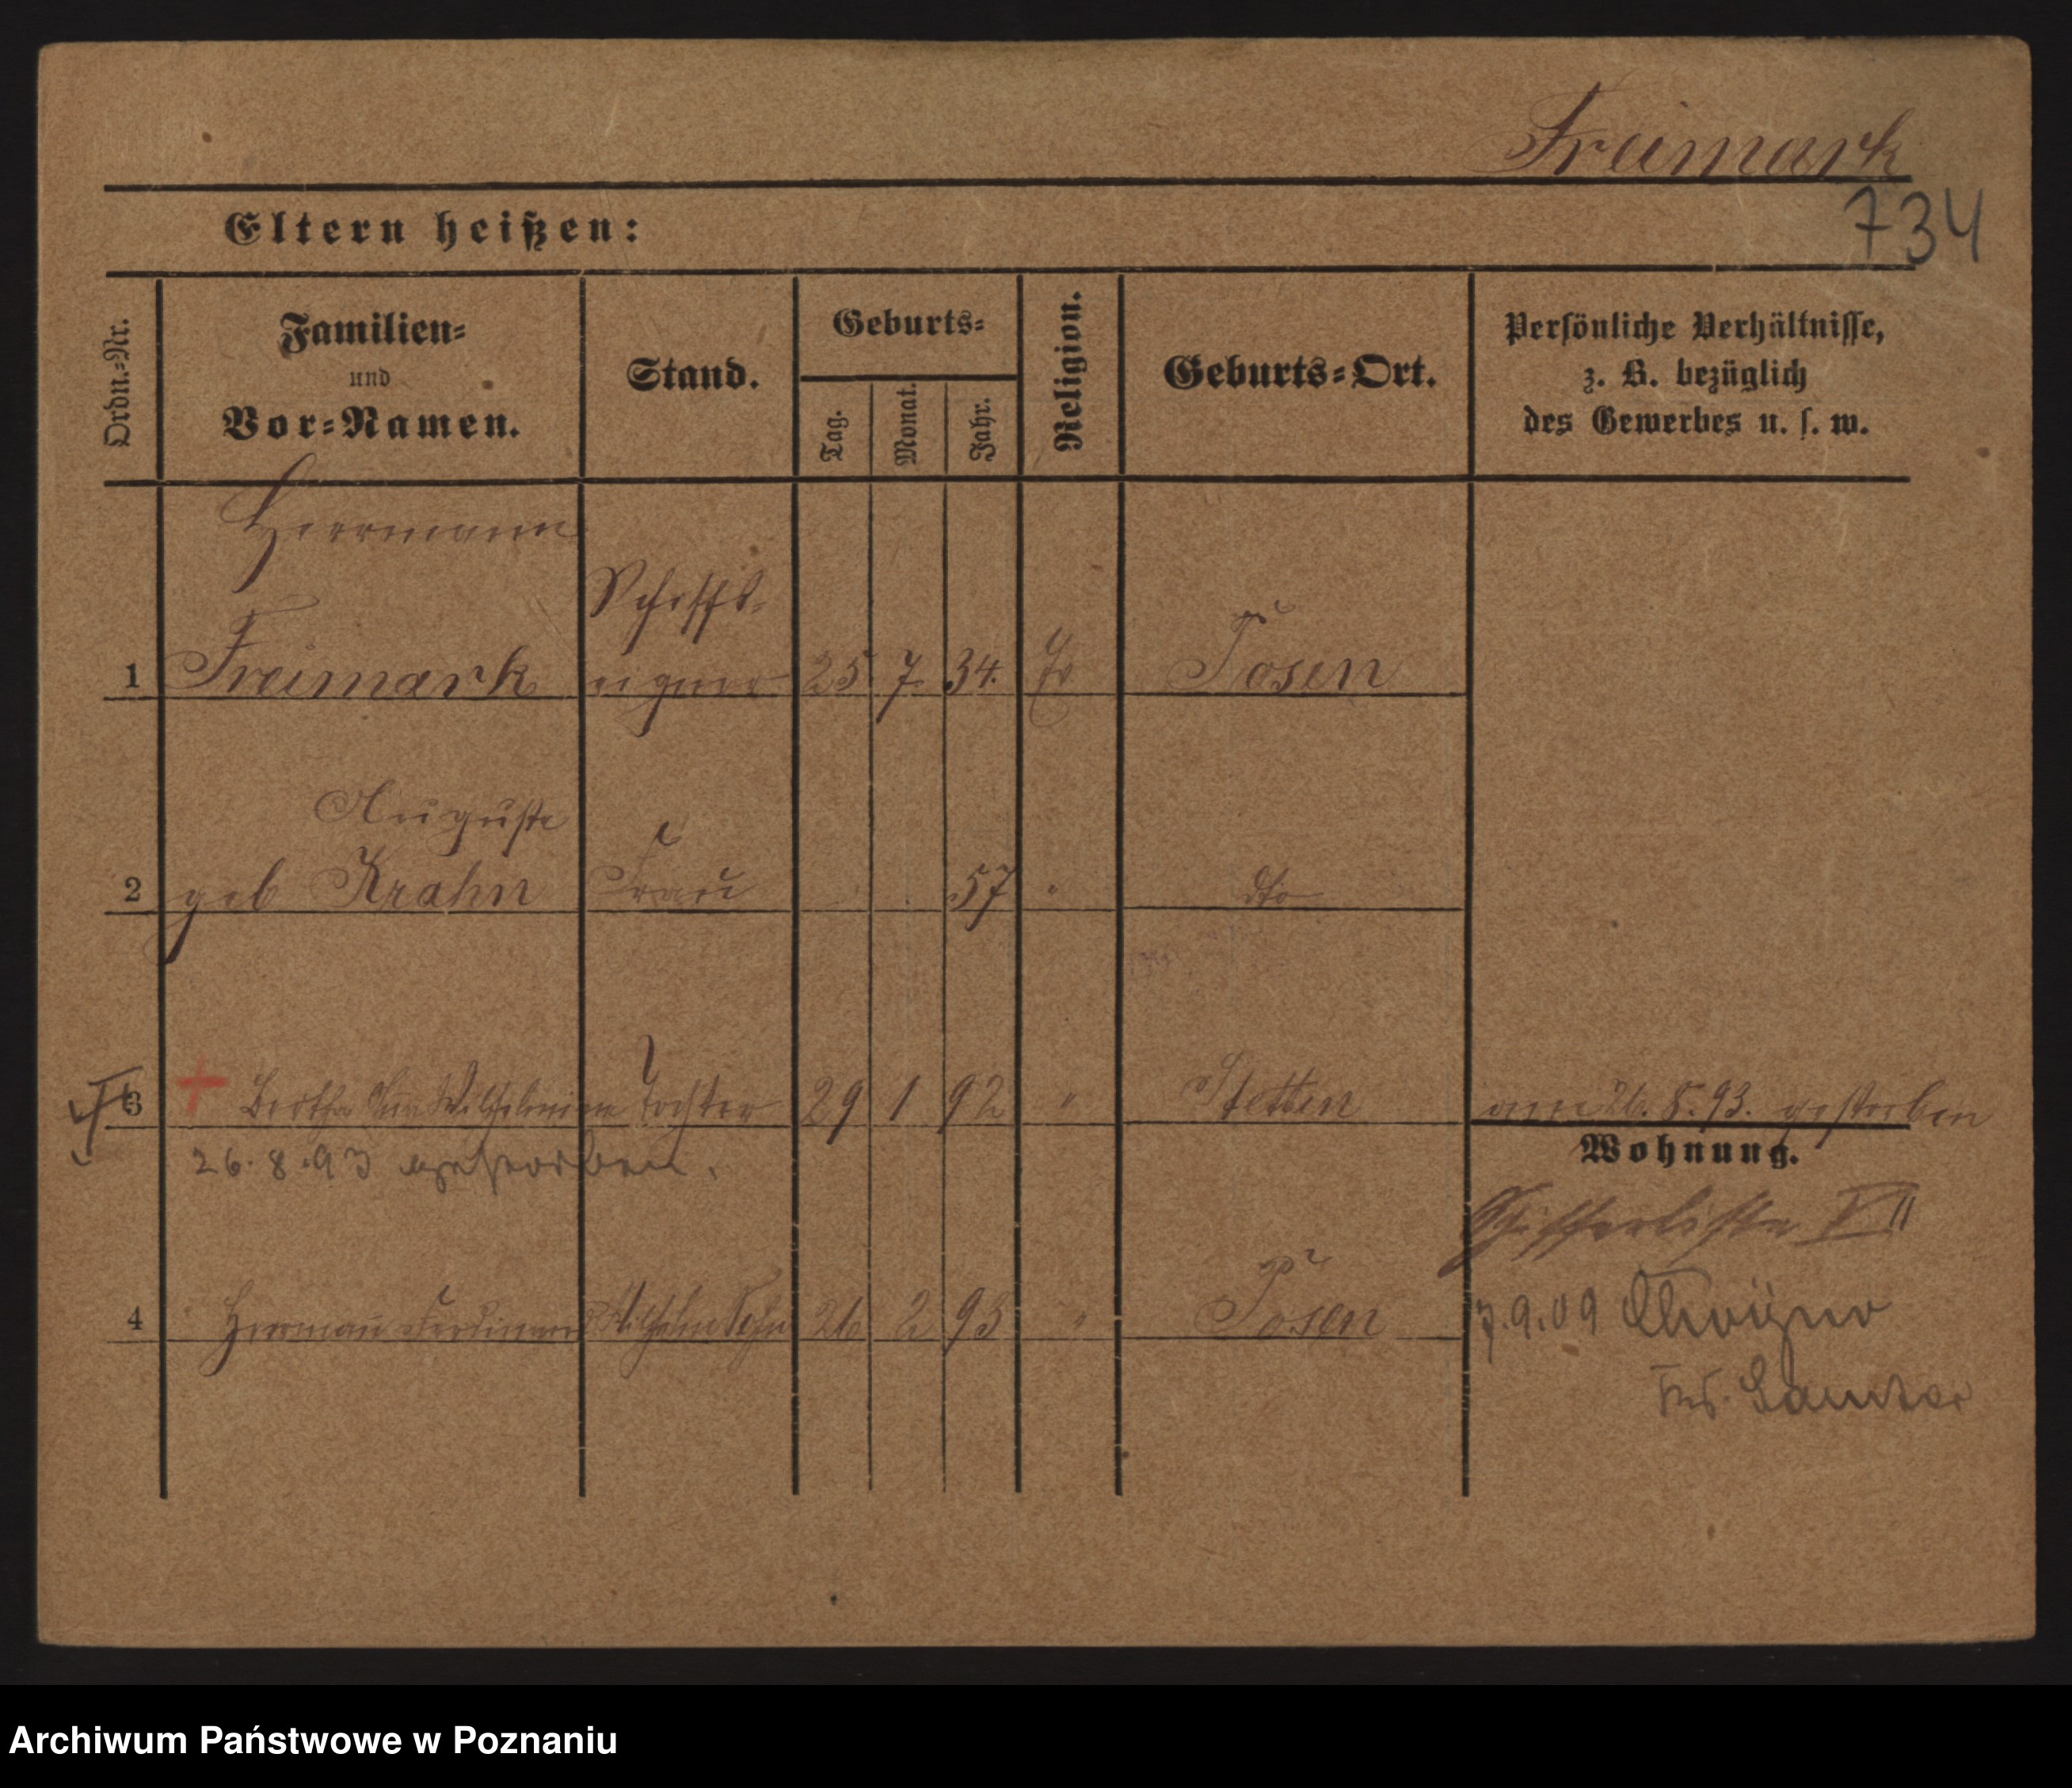 Freimark
734
Eltern heißen:
Ordn.=Nr.
Familien=
und
Vor=Namen.
Stand.
Geburts=
Tag.
Monat.
Jahr.
Religion.
Geburts=Ort.
Persönliche Verhältnisse,
z. B. bezüglich
des Gewerbes u. s. w.
Herrmann
Schiffs-
1 Freimark eigner 25. 7. 34. Posen
Auguste
2 geb Krahn Frau 57 " dto
3 Bertha Wilhelmine Tochter 29 1 92 " Stettin am 26. 8. 93. gestorben
26. 8. 93 gestorben.
Wohnung.
Schifferliste VII
4 Hermann Ferdinand Wilhelm Sohn 26 2 93 " Posen
7.9.09
Samter
Archiwum Państwowe w Poznaniu